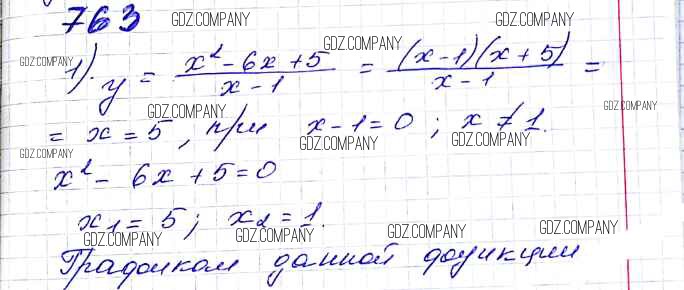 763 GDZ.COMPANY GDZ.COMPANY
GDZ.COMPANY GDZ.COMPANY
1). y = (x² - 6x + 5)/(x - 1) = ((x - 1)(x + 5))/(x - 1) =
GDZ.COMPANY GDZ.COMPANY
= x = 5, при x - 1 = 0; x ≠ 1.
GDZ.COMPANY GDZ.COMPANY GDZ.COMPANY
x² - 6x + 5 = 0
x₁ = 5; x₂ = 1.
GDZ.COMPANY GDZ.COMPANY GDZ.COMPANY GDZ.COMPANY
Графиком данной функции